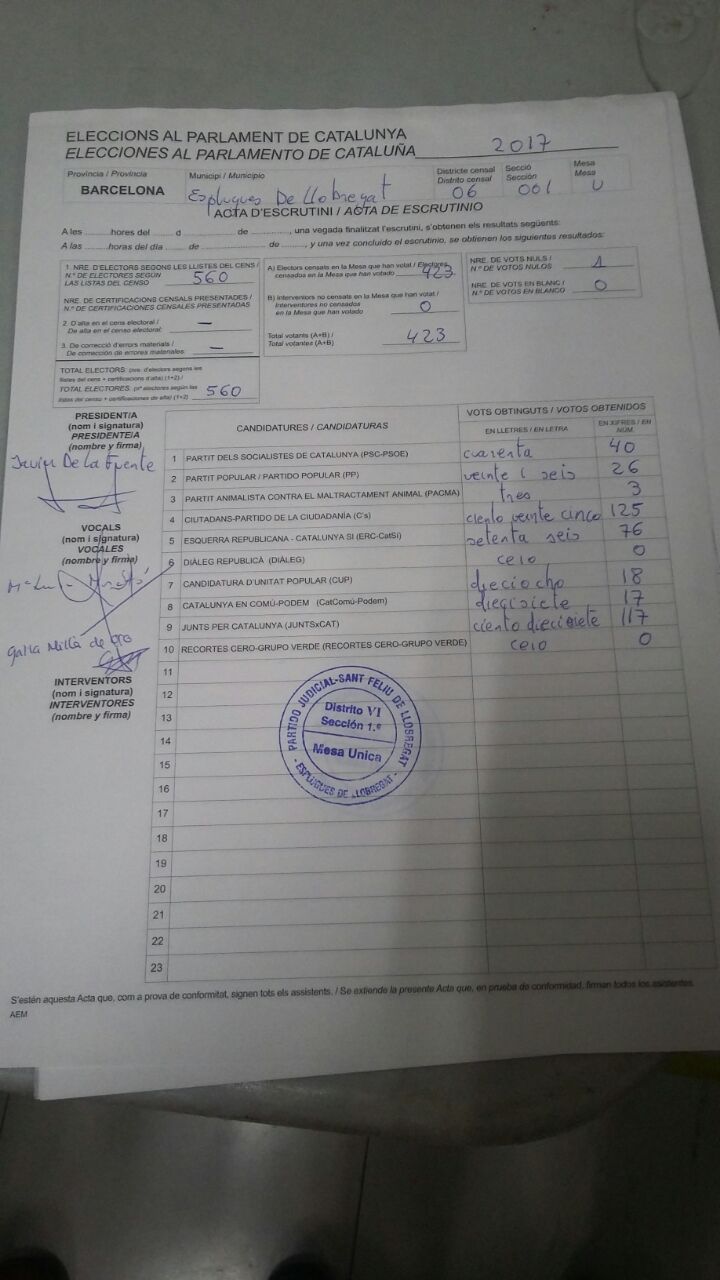 ELECCIONS AL PARLAMENT DE CATALUNYA
ELECCIONES AL PARLAMENTO DE CATALUÑA 2017
Província / Provincia
BARCELONA
Municipi / Municipio
Esplugues De Llobregat
Districte censal
Distrito censal
06
Secció
Sección
001
Mesa
Mesa
U
ACTA D'ESCRUTINI / ACTA DE ESCRUTINIO
A les ........hores del ........ d ............ de ............, una vegada finalitzat l'escrutini, s'obtenen els resultats següents:
A las ........horas del día ........ de ............ de ........, y una vez concluido el escrutinio, se obtienen los siguientes resultados:
1. NRE. D'ELECTORS SEGONS LES LLISTES DEL CENS /
N.º DE ELECTORES SEGÚN
LAS LISTAS DEL CENSO 560
NRE. DE CERTIFICACIONS CENSALS PRESENTADES /
N.º DE CERTIFICACIONES CENSALES PRESENTADAS
2. D'alta en el cens electoral /
De alta en el censo electoral: —
3. De correcció d'errors materials /
De corrección de errores materiales: —
TOTAL ELECTORS (nre. d'electors segons les
llistes del cens + certificacions d'alta) (1+2) /
TOTAL ELECTORES (nº electores según las
listas del censo + certificaciones de alta) (1+2) 560
A) Electors censats en la Mesa que han votat / Electores
censados en la Mesa que han votado 423
B) Interventors no censats en la Mesa que han votat /
Interventores no censados
en la Mesa que han votado 0
Total votants (A+B) /
Total votantes (A+B) 423
NRE. DE VOTS NULS /
N.º DE VOTOS NULOS 1
NRE. DE VOTS EN BLANC /
N.º DE VOTOS EN BLANCO 0
PRESIDENT/A
(nom i signatura)
PRESIDENTE/A
(nombre y firma)
Javier De La Fuente
VOCALS
(nom i signatura)
VOCALES
(nombre y firma)
INTERVENTORS
(nom i signatura)
INTERVENTORES
(nombre y firma)
CANDIDATURES / CANDIDATURAS
VOTS OBTINGUTS / VOTOS OBTENIDOS
EN LLETRES / EN LETRA
EN XIFRES / EN NÚM.
1 PARTIT DELS SOCIALISTES DE CATALUNYA (PSC-PSOE) cuarenta 40
2 PARTIT POPULAR / PARTIDO POPULAR (PP) veinte i seis 26
3 PARTIT ANIMALISTA CONTRA EL MALTRACTAMENT ANIMAL (PACMA) tres 3
4 CIUTADANS-PARTIDO DE LA CIUDADANÍA (C's) ciento veinte cinco 125
5 ESQUERRA REPUBLICANA - CATALUNYA SÍ (ERC-CatSí) setenta seis 76
6 DIÀLEG REPUBLICÀ (DIÀLEG) cero 0
7 CANDIDATURA D'UNITAT POPULAR (CUP) dieciocho 18
8 CATALUNYA EN COMÚ-PODEM (CatComú-Podem) diecisiete 17
9 JUNTS PER CATALUNYA (JUNTSxCAT) ciento diecisiete 117
10 RECORTES CERO-GRUPO VERDE (RECORTES CERO-GRUPO VERDE) cero 0
11
12
13
14
15
16
17
18
19
20
21
22
23
PARTIDO JUDICIAL-SANT FELIU DE LLOBREGAT
Distrito VI
Sección 1.ª
Mesa Unica
- ESPLUGUES DE LLOBREGAT -
S'estén aquesta Acta que, com a prova de conformitat, signen tots els assistents. / Se extiende la presente Acta que, en prueba de conformidad, firman todos los asistentes.
AEM